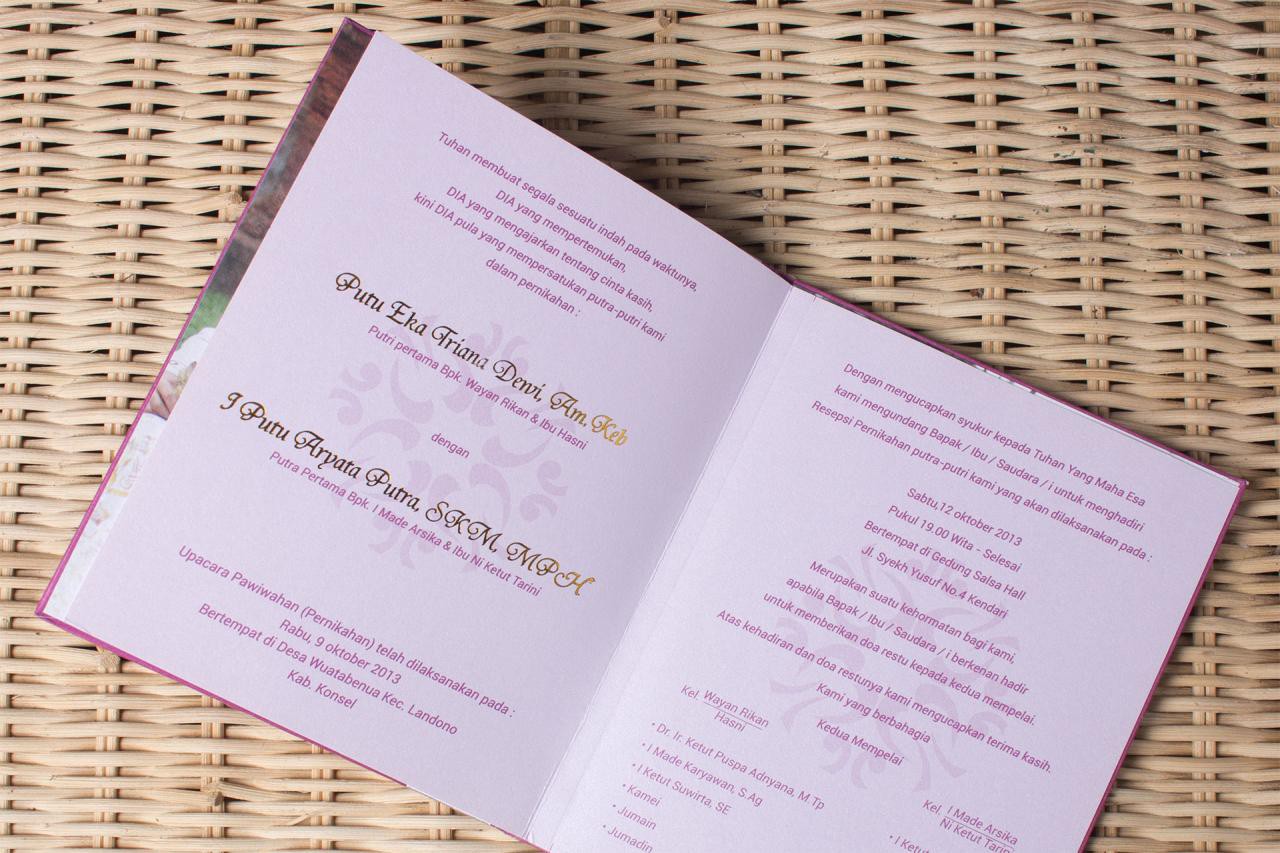 Tuhan membuat segala sesuatu indah pada waktunya,
DIA yang mempertemukan,
DIA yang mengajarkan tentang cinta kasih,
kini DIA pula yang mempersatukan putra-putri kami
dalam pernikahan :
Putu Eka Triana Dewi, Am.Keb
Putri pertama Bpk. Wayan Rikan & Ibu Hasni
dengan
I Putu Aryata Putra, SKM, MPH
Putra Pertama Bpk. I Made Arsika & Ibu Ni Ketut Tarini
Upacara Pawiwahan (Pernikahan) telah dilaksanakan pada :
Rabu, 9 oktober 2013
Bertempat di Desa Wuatabenua Kec. Landono
Kab. Konsel
Dengan mengucapkan syukur kepada Tuhan Yang Maha Esa
kami mengundang Bapak / Ibu / Saudara / i untuk menghadiri
Resepsi Pernikahan putra-putri kami yang akan dilaksanakan pada :
Sabtu,12 oktober 2013
Pukul 19.00 Wita - Selesai
Bertempat di Gedung Salsa Hall
Jl. Syekh Yusuf No.4 Kendari
Merupakan suatu kehormatan bagi kami,
apabila Bapak / Ibu / Saudara / i berkenan hadir
untuk memberikan doa restu kepada kedua mempelai.
Atas kehadiran dan doa restunya kami mengucapkan terima kasih.
Kami yang berbahagia
Kedua Mempelai
Kel. Wayan Rikan
Hasni
• Dr. Ir. Ketut Puspa Adnyana, M.Tp
• I Made Karyawan, S.Ag
• I Ketut Suwirta, SE
• Kamei
• Jumain
• Jumadin
Kel. I Made Arsika
Ni Ketut Tarini
• I Ketut